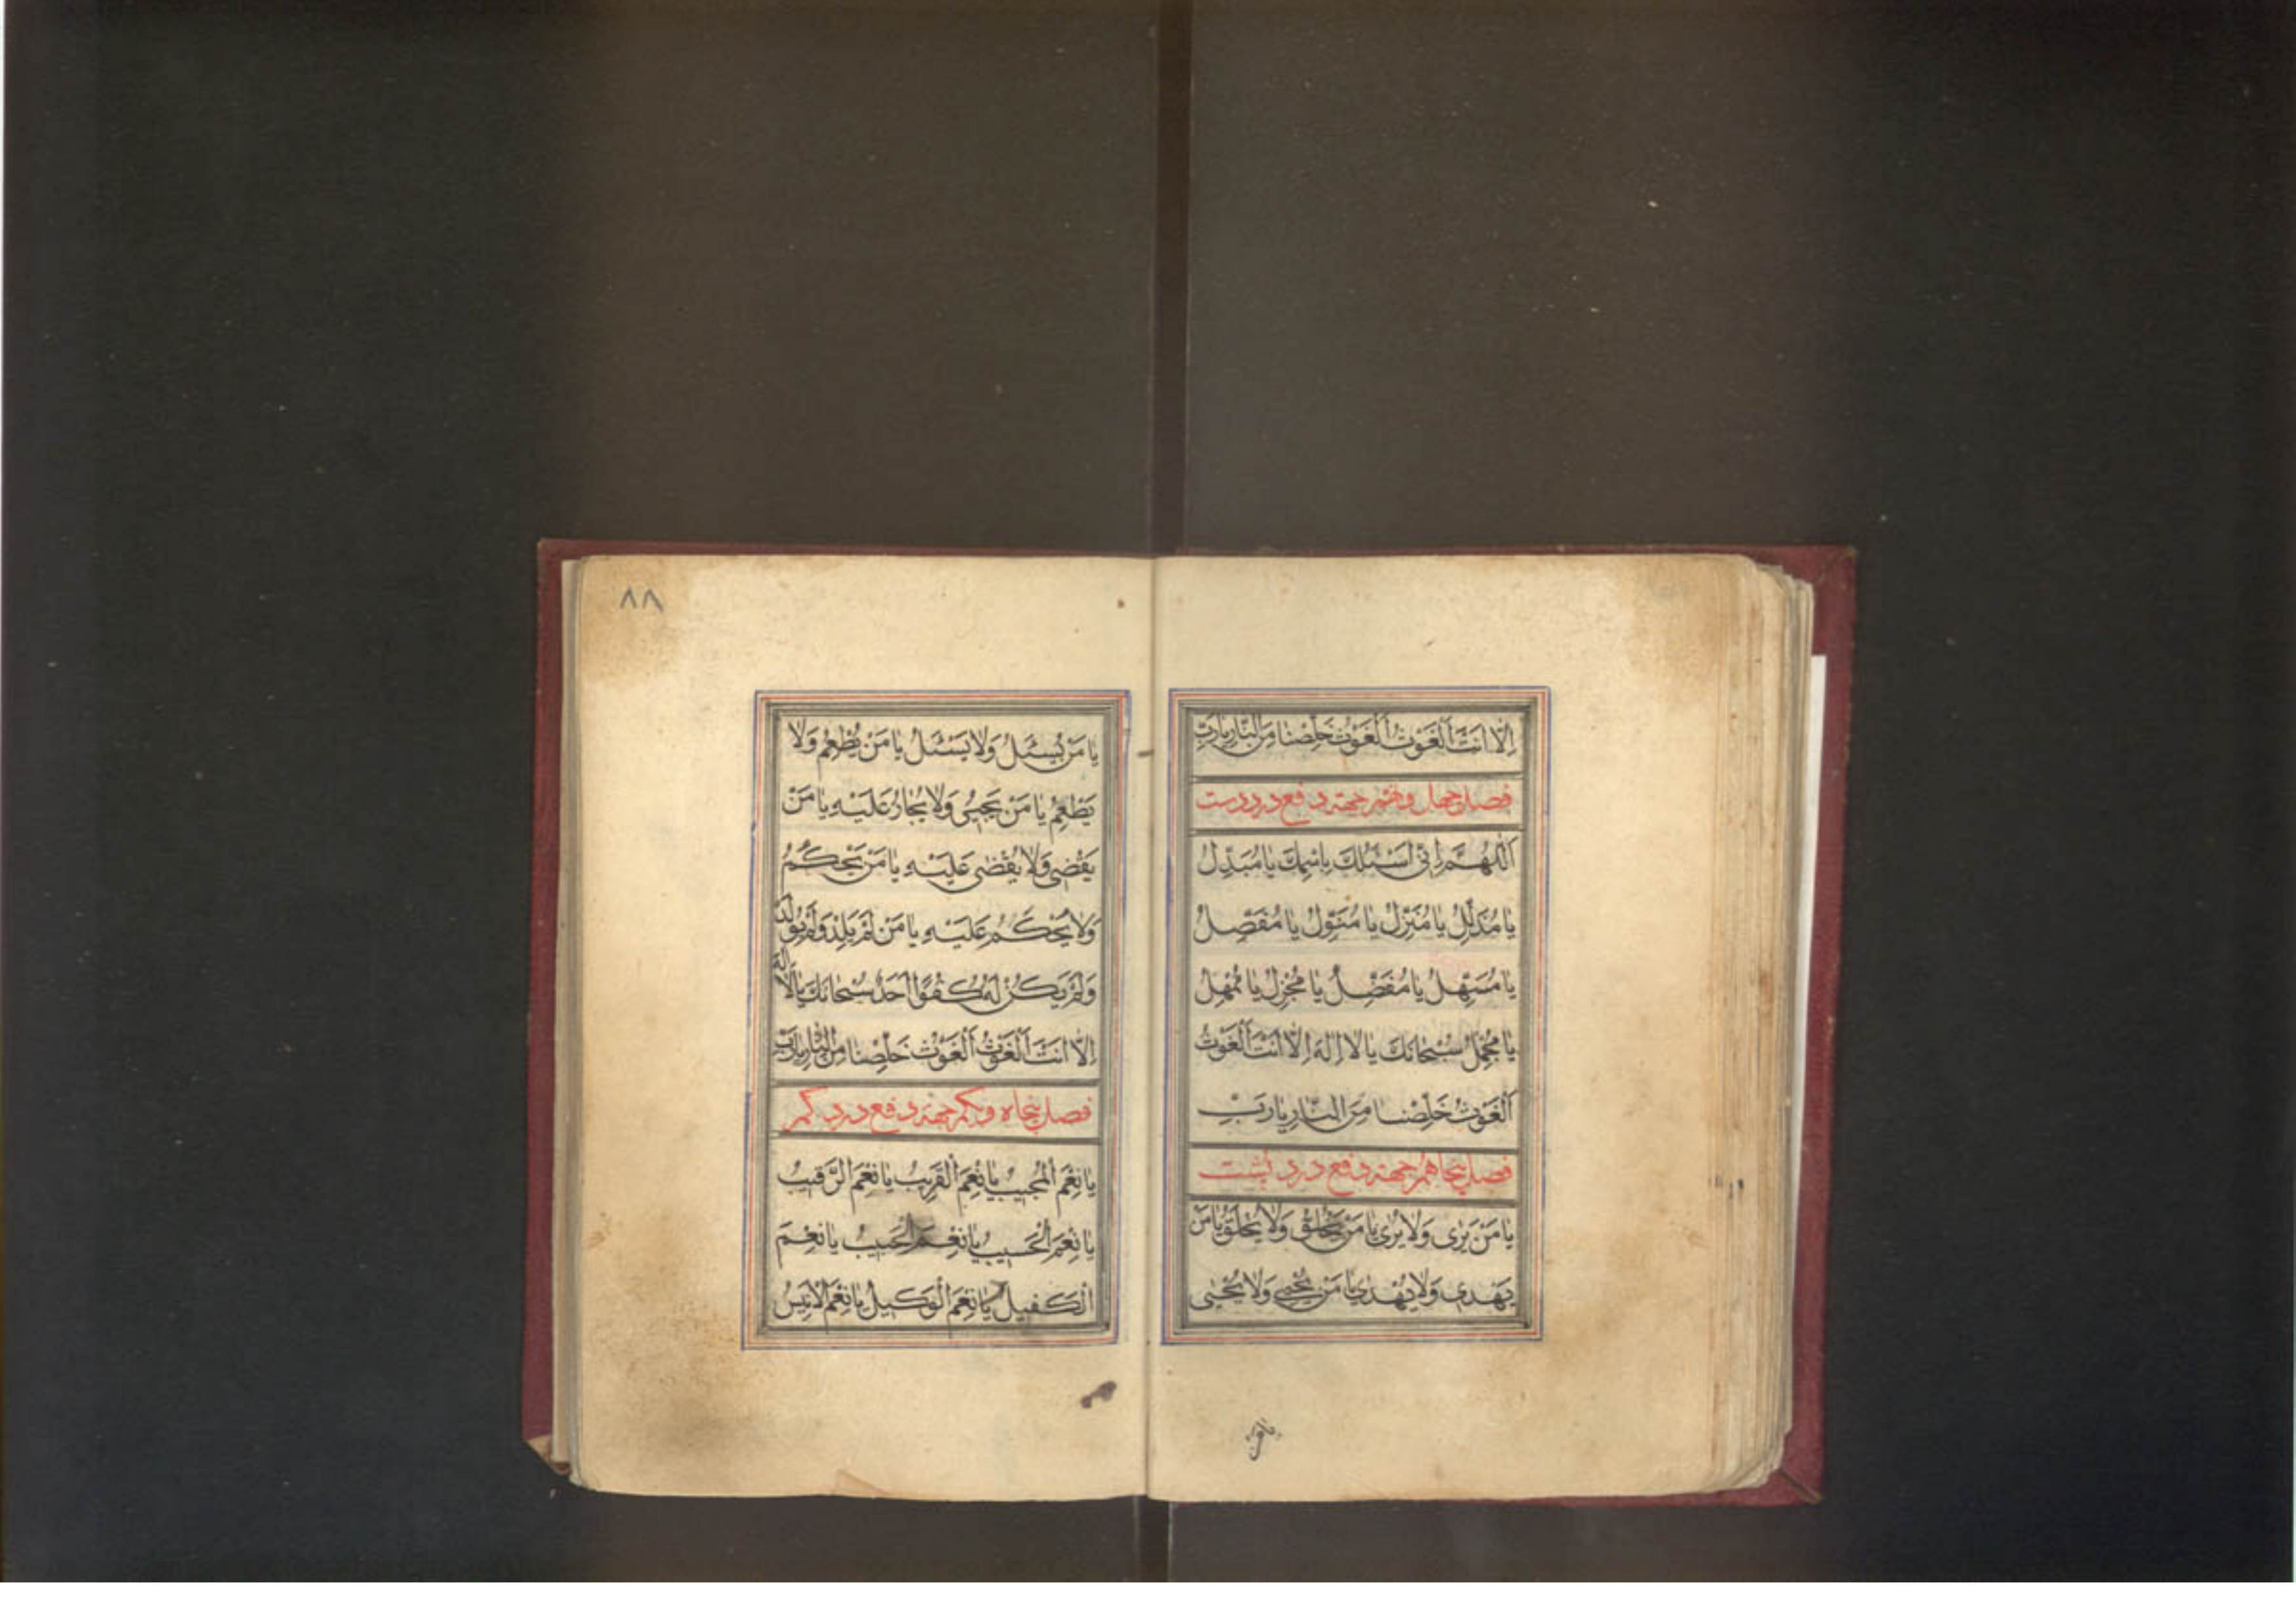 اِلّا اَنْتَ اَلْغَوْثَ اَلْغَوْثَ خَلِّصْنا مِنَ النّارِ يارَبِّ
فصل چهل و نهم جهة دفع درد دست
اَللّهُمَّ اِنّى اَسْئَلُكَ بِاسْمِكَ يا مُبَدِّلُ
يا مُذَلِّلُ يا مُنَزِّلُ يا مُنَوِّلُ يا مُفَصِّلُ
يا مُسَهِّلُ يا مُفَضِّلُ يا مُجْزِلُ يا مُمْهِلُ
يا مُجْمِلُ سُبْحانَكَ يا لا اِلهَ اِلّا اَنْتَ اَلْغَوْثَ
اَلْغَوْثَ خَلِّصْنا مِنَ النّارِ يارَبِّ
فصل پنجاهم جهة دفع درد پشت
يا مَنْ يَرى وَلا يُرى يا مَنْ يَخْلُقُ وَلا يُخْلَقُ يا مَنْ
يَهْدى وَلا يُهْدى يا مَنْ يُحْيى وَلا يُحْيى
يا مَن
٨٨
يا مَنْ يُسْئَلُ وَلا يَسْئَلُ يا مَنْ يُطْعِمُ وَلا
يُطْعَمُ يا مَنْ يُجيرُ وَلا يُجارُ عَلَيْهِ يا مَنْ
يَقْضى وَلا يُقْضى عَلَيْهِ يا مَنْ يَحْكُمُ
وَلا يُحْكَمُ عَلَيْهِ يا مَنْ لَمْ يَلِدْ وَلَمْ يُولَدْ
وَلَمْ يَكُنْ لَهُ كُفُوًا اَحَدٌ سُبْحانَكَ يا لا اِلهَ
اِلّا اَنْتَ اَلْغَوْثَ اَلْغَوْثَ خَلِّصْنا مِنَ النّارِ يارَبِّ
فصل پنجاه و یکم جهة دفع درد کمر
يا نِعْمَ الْمُجيبُ يا نِعْمَ الْقَريبُ يا نِعْمَ الرَّقيبُ
يا نِعْمَ الْحَسيبُ يا نِعْمَ الْحَبيبُ يا نِعْمَ
الْكَفيلُ يا نِعْمَ الْوَكيلُ يا نِعْمَ الْاَنيسُ